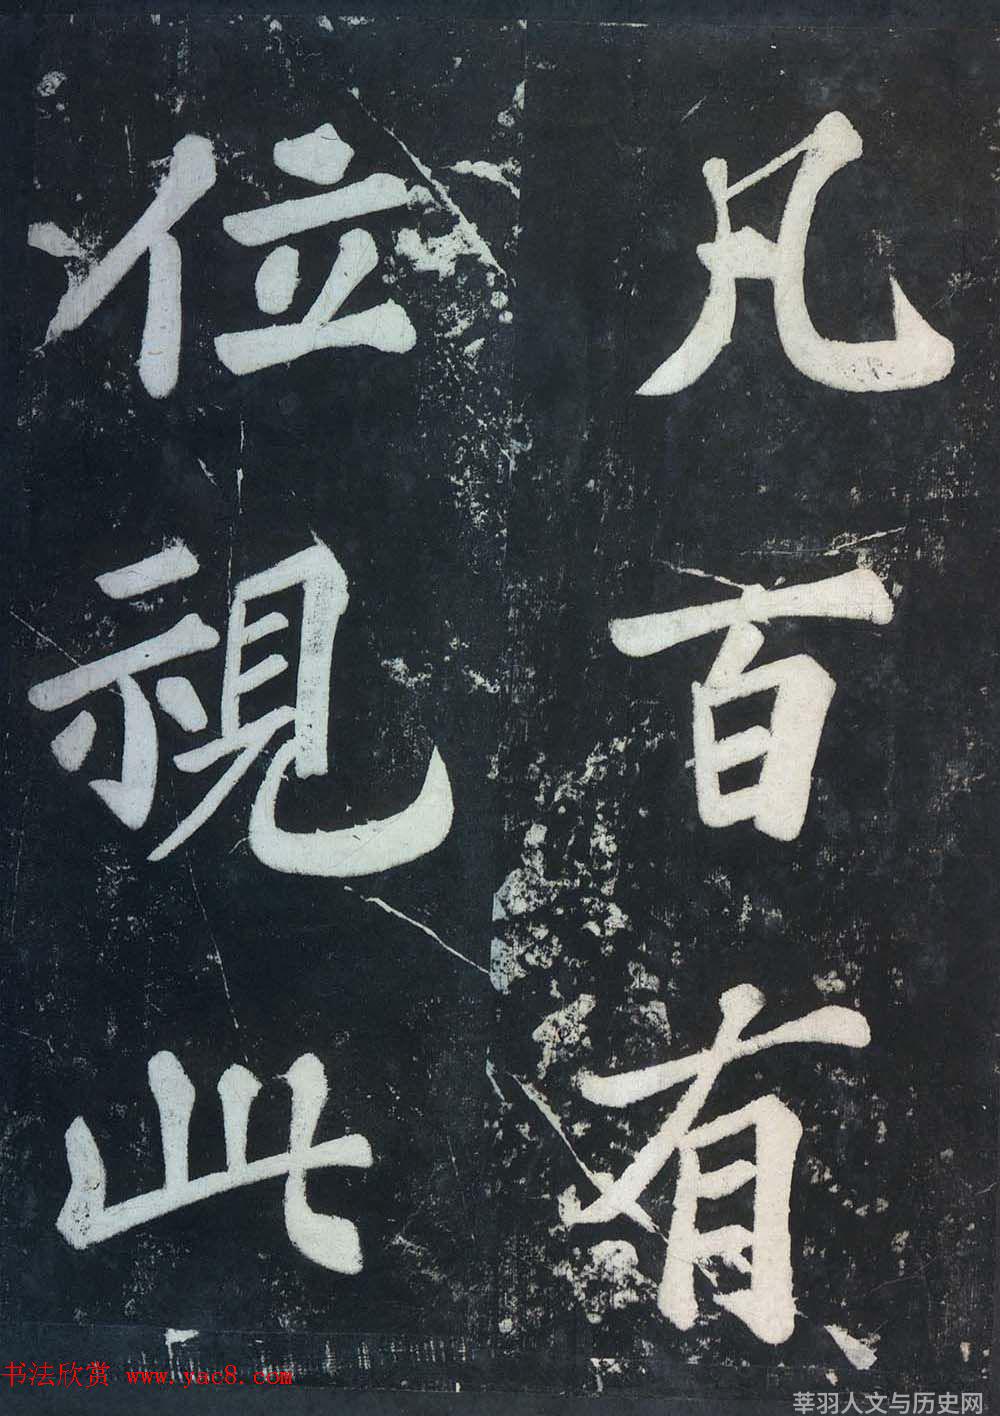 凡百有
位視此
书法欣赏 www.yac8.com
莘羽人文与历史网